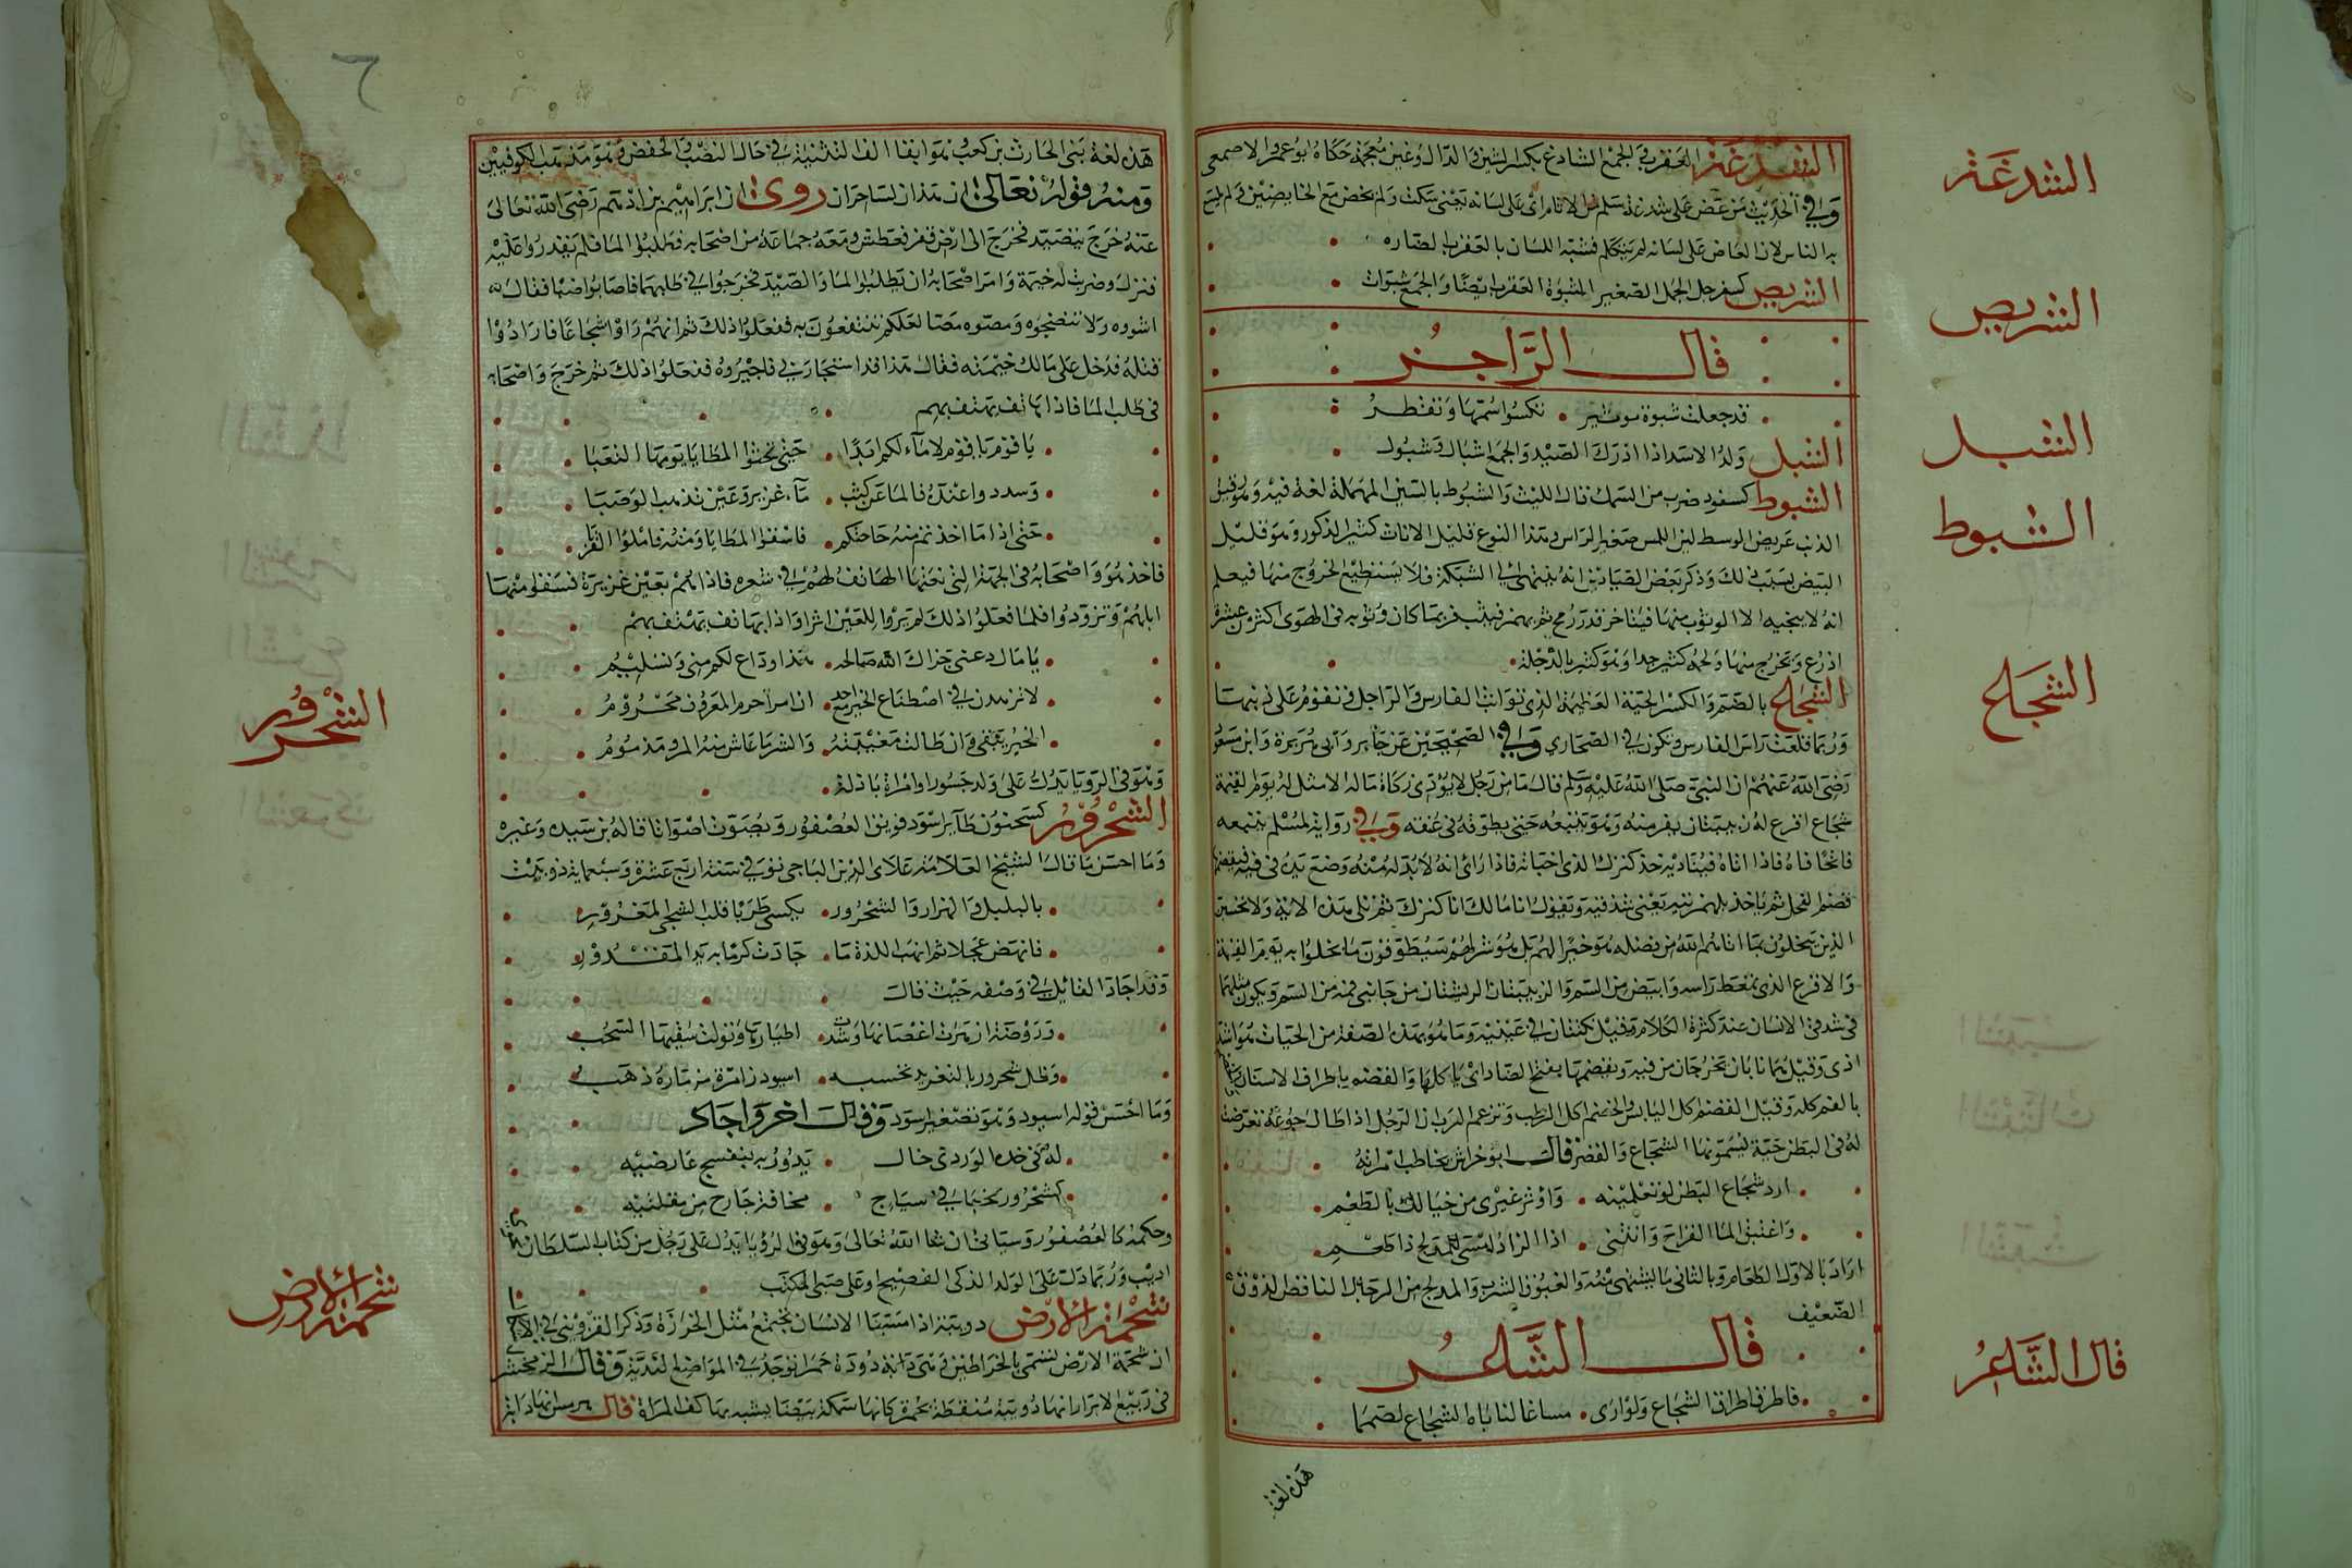 الشدغة العقرب والجمع الشادغ بكسر الشين والدال وغين معجمة حكاه ابو عمر والاصمعي
وفي الحديث من عض على شدغته سلم من الاثام اي على لسانه يعني سكت ولم يخض مع الخايضين ولم يلسع
به الناس لان العاض على لسانه لم يتكلم فشبه اللسان بالعقرب الضاره
الشربص كسفرجل الجمل الصغير الشبوة العقرب ايضا والجمع شبوات
قال الراجز
قد جعلت شبوة تزبئر • تكسوا ستها وتقطر
الشبل ولد الاسد اذا ادرك الصيد والجمع اشبال وشبول
الشبوط كسفود ضرب من السمك قال الليث والسبوط بالسين المهملة لغة فيه وهو دقيق
الذنب عريض الوسط لين الملمس صغير الراس وهذا النوع قليل الاناث كثير الذكور وهو قليل
البيض بسبب ذلك وذكر بعض الصيادين انه ينتهي الى الشبكة فلا يستطيع الخروج منها فيعلم
انه لا ينجيه الا الوثوب منها فيتاخر قدر رمح ثم يهمز فيثب فربما كان وثوبه في الهوى اكثر من عشرة
اذرع وتخرج منها ولحمه كثير جدا وهو كثير بالدجلة
الشجاع بالضم والكسر الحية العظيمة الذي تواثب الفارس والراجل وتقوم على ذنبها
وربما قلعت راس الفارس وتكون في الصحاري وفي الصحيحين عن جابر وابي هريرة وابن مسعود
رضي الله عنهم ان النبي صلى الله عليه وسلم قال ما من رجل لا يؤدي زكاة ماله الا مثل له يوم القيمة
شجاع اقرع له زبيبتان يفر منه وهو يتبعه حتى يطوقه في عنقه وفي رواية لمسلم يتبعه
فاتحا فاه فاذا اتاه فيناديه خذ كنزك الذي اخباته فاذا راى انه لا بد له منه وضع يده في فيه فيقضمها
قضم الفحل ثم ياخذ بلهزمتيه يعني شدقيه ويقول انا مالك انا كنزك ثم تلى هذه الاية ولا تحسبن
الذين يبخلون بما اتاهم الله من فضله هو خيرا لهم بل هو شر لهم سيطوقون ما بخلوا به يوم القيمة
والاقرع الذي تمعط راسه وابيض من السم والزبيبتان الريشتان من جانبي فمه من السم ويكون مثلهما
في شدقي الانسان عند كثرة الكلام وقيل نكتتان في عينيه وما هو بهذه الصفة من الحيات هو اشد
اذى وقيل نابان يخرجان من فيه ويقضمها بفتح الضاد اي ياكلها والقضم باطراف الاسنان
بالفم كله وقيل القضم اكل اليابس والخضم اكل الرطب وتزعم العرب ان الرجل اذا طال جوعه تعرضت
له في البطن حية يسمونها الشجاع والصفر قال ابو خراش يخاطب امراته
ارد شجاع البطن لو تعلمينه • واؤثر غيري من عيالك بالطعم
واغتبق الماء القراح وانثني • اذا الزاد امسى للمدلج ذا طعم
اراد بالاول الطعام وبالثاني ما يشتهى منه والغبوق الشرب والمدلج من الرجال الناقص الذوق
الضعيف
قال الشاعر
فاطرق اطراق الشجاع ولو ارى • مساغا لناباه الشجاع لصمما
هذه لغة
هذه لغة بني الحارث بن كعب بتوابقا الف التثنية في حال النصب والخفض وهو مذهب الكوفيين
ومنه قوله تعالى ان هذان لساحران روي ان ابراهيم بن ادهم رضي الله تعالى
عنه خرج يتصيد فخرج الى ارض قفر فعطش ومعه جماعة من اصحابه فطلبوا الماء فلم يقدروا عليه
فنزل وضربت له خيمة وامر اصحابه ان يطلبوا الماء والصيد فخرجوا في طلبهما فاصابوا ضبا فقال
اشووه ولا تنضجوه ومصوه مصا لعلكم تنتفعون به ففعلوا ذلك ثم انهم راوا شجاعا فارادوا
قتله فدخل على مالك خيمته فقال هذا قد استجار بي فاجيروه ففعلوا ذلك ثم خرج واصحابه
في طلب الماء فاذا هاتف يهتف بهم
يا قوم يا قوم لا ماء لكم ابدا • حتى تحثوا المطايا يومها التعبا
وسددوا عنده فالماء عن كثب • ماء غزير وعين تذهب الوصبا
حتى اذا ما اخذتم منه حاجتكم • فاسقوا المطايا ومنه فاملوا القربا
فاخذ هو واصحابه في الجهة التي نعتها الهاتف لهم في شعره فاذا هم بعين غزيرة فسقوا منها
ابلهم وتزودوا فلما فعلوا ذلك لم يروا للعين اثرا واذا بهاتف يهتف بهم
يا مال عني جزاك الله صالحه • هذا وداع لكم مني وتسليم
لا تزهدن في اصطناع الخير مع احد • ان امرأ حرم المعروف محروم
الخير يبقى وان طالت مغيبته • والشر ما عاش منه المرء مذموم
وهو في الرويا يدل على ولد جسور او امراة باذلة
الشحرور كسحنون طاير اسود فويق العصفور ويصوت اصواتا قاله بن سيده وغيره
وما احسن ما قال الشيخ العلامة علاي الدين الباجي توفي سنة اربع عشرة وسبعماية ذو بيت
بالبلبل والهزار والشحرور • يكسى طربا قلب الشجي المغرور
فانهض عجلا ثم انهب للذة ما • جادت كرما به يد المقدور
وقد اجاد القائل في وصفه حيث قال
وروضة ازهرت اغصانها وشدت • اطيارها وتولت سقيها السحب
وظل شحرورها التغريد تحسبه • اسيود زامرة مزماره ذهب
وما احسن قوله اسيود وهو تصغير اسود وقال اخر واجاد
له في خده الوردي خال • يدور به بنفسج عارضيه
كشحرور تخبا في سياج • مخافة جارح من مقلتيه
وحكمه كالعصفور وسياتي ان شا الله تعالى وهو في الرؤيا يدل على رجل من كتاب السلطان
اديب وربما دل على الولد الذكي الفصيح او على صبي المكتب
شحمة الارض دويبة اذا امستها الانسان تجتمع مثل الخرزة وذكر القزويني في
ان شحمة الارض تسمى بالخراطين وهي دابة دودة حمرا توجد في المواضع الندية وقال الزمخشري
في ربيع الابرار انها دويبة منقطة بحمرة كانها سمكة بيضا يشبه بها كف المراة قال هرمس انها دابة
الشدغة
الشربص
الشبل
الشبوط
الشجاع
قال الشاعر
الشحرور
شحمة الارض